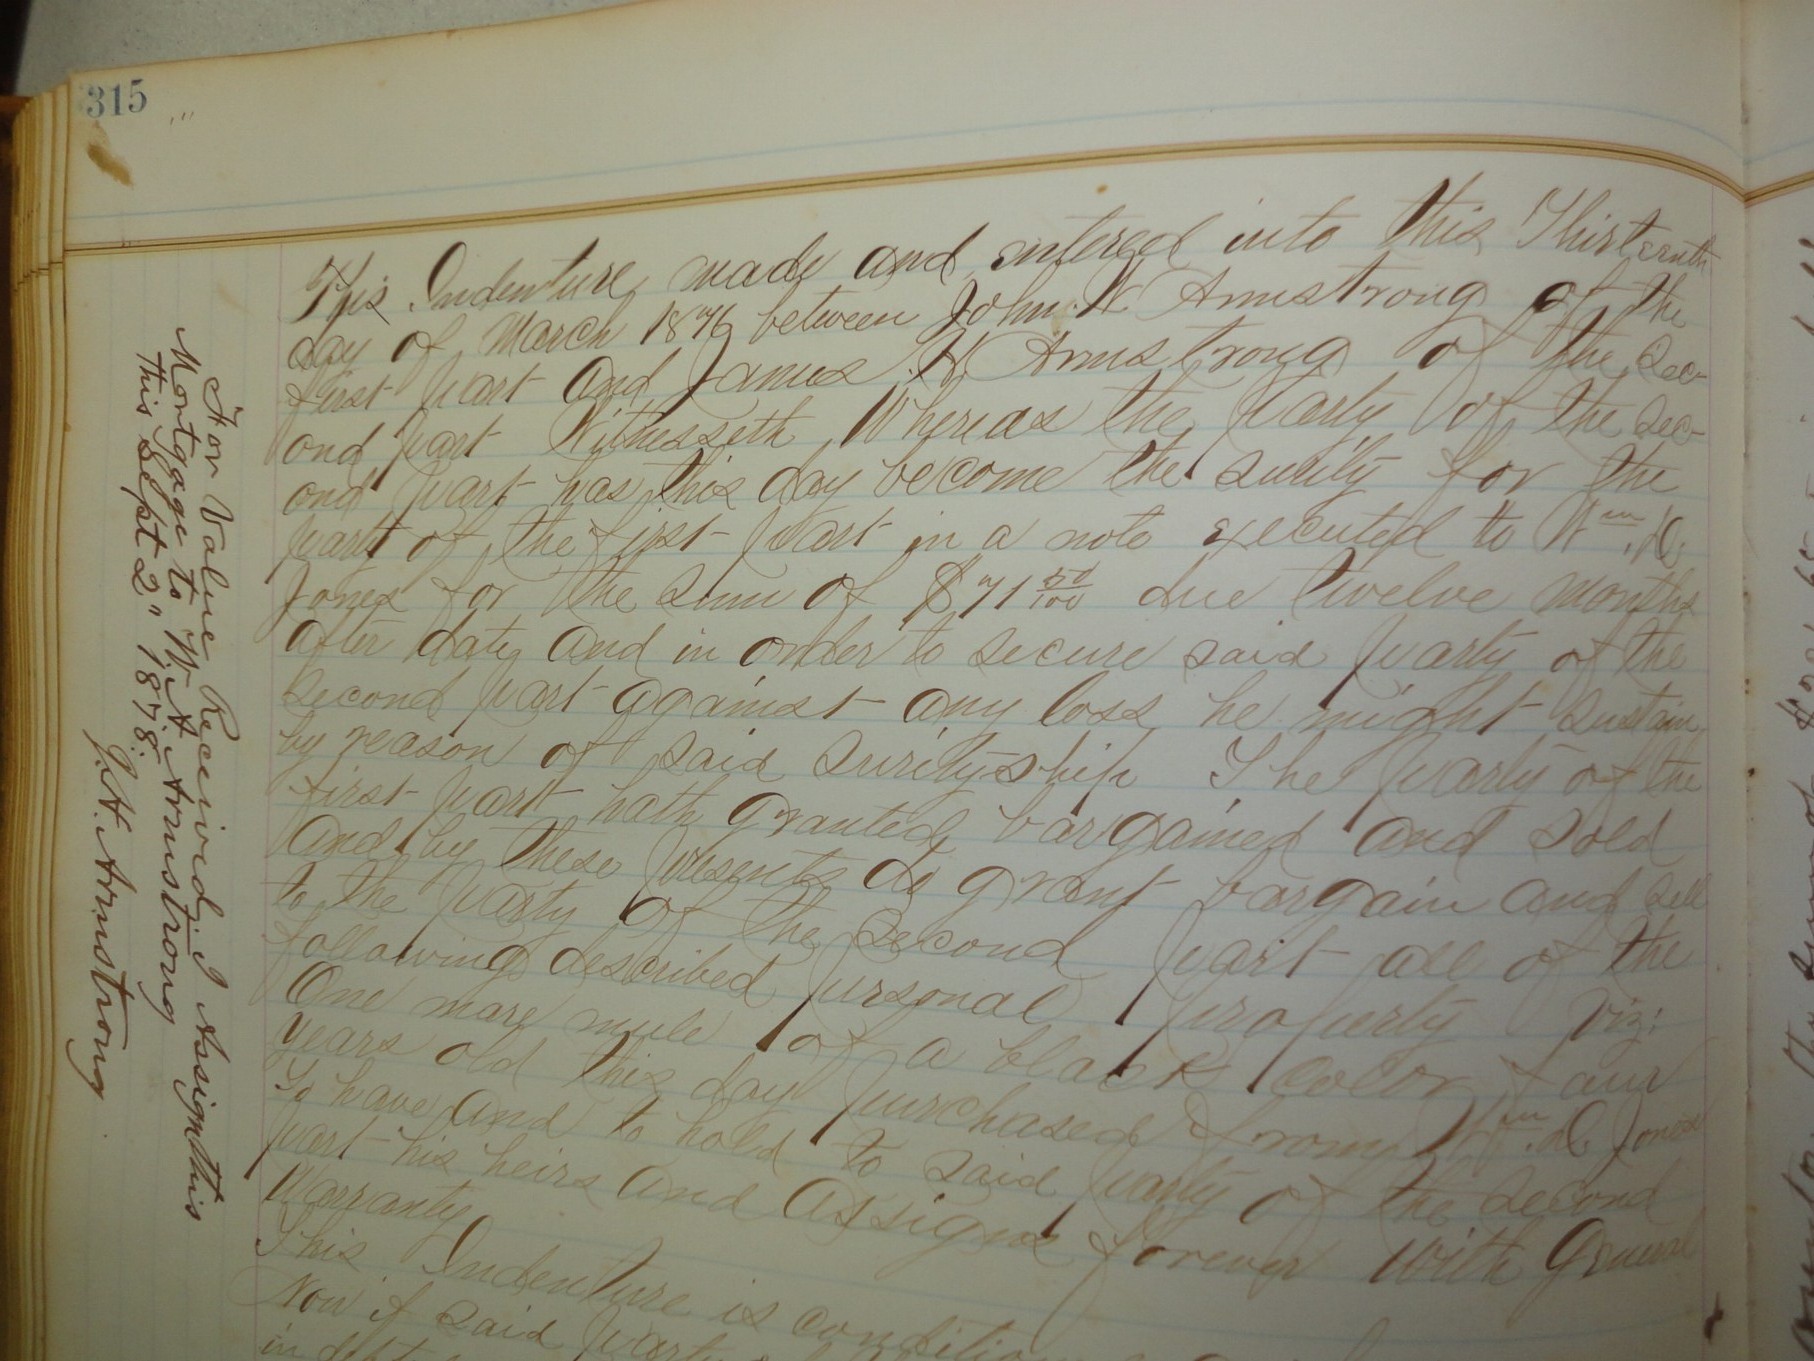 315
This Indenture made and entered into this Thirteenth
day of March 1876 between John W Armstrong of the
first part and James H Armstrong of the Sec-
ond part Witnesseth, Whereas the party of the Sec-
ond part has this day become the surity for the
party of the first part in a note executed to Wm. D.
Jones for the sum of $71 50/100 due twelve months
after date and in order to secure said party of the
second part against any loss he might sustain
by reason of said surityship The party of the
first part hath granted, bargained and sold
and by these presents do grant bargain and sell
to the party of the second part all of the
following described personal property viz:
One mare mule of a black color four
years old this day purchased from Wm. D. Jones
To have and to hold to said party of the second
part his heirs and assigns forever with General
Warranty
This Indenture is
Now if said party
For Value Received, I Assign this
Mortgage to W. A. Armstrong
this Sept 2" 1878.
J. H. Armstrong